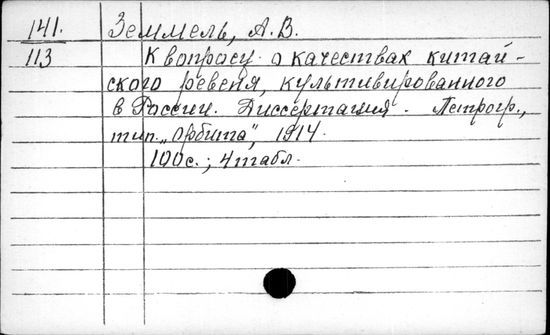 141. Земмель, А.В.
113 К вопросу о качествах китай-
ского ревеня, культивированного
в России. Диссертация. Петрогр.,
тип. „Орбита", 1914.
100с.; 4 табл.